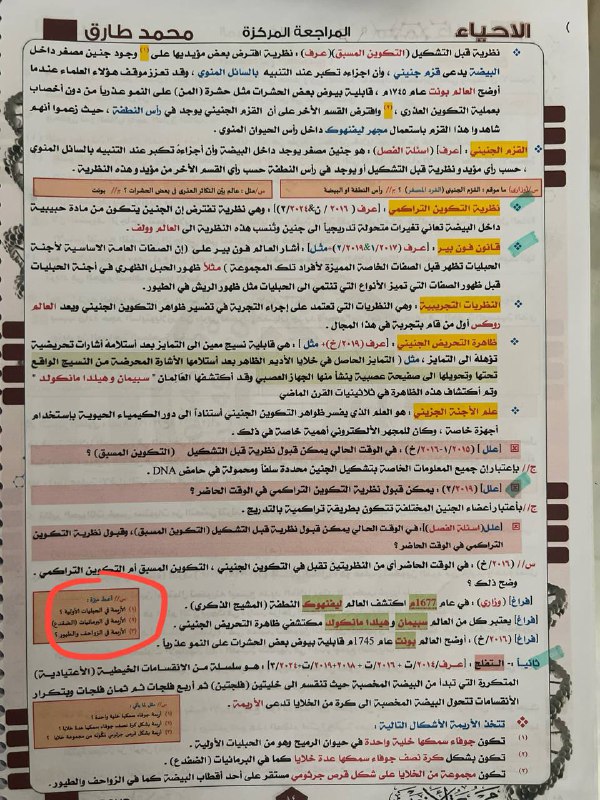 الاحياء المراجعة المركزة محمد طارق
نظرية قبل التشكيل (التكوين المسبق)(عرف) : نظرية افترض بعض مؤيديها على (١) وجود جنين مصغر داخل
البيضة يدعى قزم جنيني ، وأن اجزاءه تكبر عند التنبيه بالسائل المنوي ، وقد تعزز موقف هؤلاء العلماء عندما
أوضح العالم بونت عام ١٧٤٥م ، قابلية بيوض بعض الحشرات مثل حشرة (المن) على النمو عذرياً من دون أخصاب
بعملية التكوين العذري ، (٢) وافترض القسم الأخر على أن القزم الجنيني يوجد في رأس النطفة ، حيث زعموا أنهم
شاهدوا هذا القزم باستعمال مجهر ليفنهوك داخل رأس الحيوان المنوي .
القزم الجنيني : [عرف] (اسئلة الفصل) : هو جنين مصغر يوجد داخل البيضة وأن أجزاءه تكبر عند التنبيه بالسائل المنوي
، حسب رأي مؤيدو نظرية قبل التشكيل أو يوجد في رأس النطفة حسب رأي القسم الأخر من مؤيدو هذه النظرية .
س/(وزاري) ما موقع : القزم الجنيني (الفرد المصغر) ؟ ج// رأس النطفة او البيضة
س/مثل : عالم بيّن التكاثر العذري في بعض الحشرات ؟ ج// بونت
نظرية التكوين التراكمي : [عرف (٢٠١٦/ن&٢٠٢٤/٢)] : وهي نظرية تفترض إن الجنين يتكون من مادة حبيبية
داخل البيضة تعاني تغيرات متحولة تدريجياً الى جنين وتُنسب هذه النظرية الى العالم وولف.
قانون فون بير : [عرف (١/٢٠١٧&٢/٢٠١٩)+مثل] : أشار العالم فون بير على (إن الصفات العامة الاساسية لأجنة
الحبليات تظهر قبل الصفات الخاصة المميزة لأفراد تلك المجموعة ) مثلاً ظهور الحبل الظهري في أجنة الحبليات
قبل ظهور الصفات التي تميز الأنواع التي تنتمي الى الحبليات مثل ظهور الريش في الطيور.
النظريات التجريبية : وهي النظريات التي تعتمد على إجراء التجربة في تفسير ظواهر التكوين الجنيني ويعد العالم
روكس أول من قام بتجربة في هذا المجال .
ظاهرة التحريض الجنيني : [عرف (٢٠١٩/خ)+ مثل ] : هي قابلية نسيج معين الى التمايز بعد أستلامه أشارات تحريضية
تؤهلة الى التمايز ، مثل ( التمايز الحاصل في خلايا الأديم الظاهر بعد أستلامها الأشارة المحرضة من النسيج الواقع
تحتها وتحويلها الى صفيحة عصبية ينشأ منها الجهاز العصبي وقد أكتشفها العالمان " سبيمان و هيلدا مانكولد "
وتم أكتشاف هذه الظاهرة في ثلاثينيات القرن الماضي
علم الأجنة الجزيئي : هو العلم الذي يفسر ظواهر التكوين الجنيني أستناداً الى دور الكيمياء الحيوية بإستخدام
أجهزة خاصة ، وكان للمجهر الألكتروني أهمية خاصة في ذلك .
[علل] (١/٢٠١٥-٢٠١٦/خ) : في الوقت الحالي يمكن قبول نظرية قبل التشكيل (التكوين المسبق) ؟
ج// بإعتبار إن جميع المعلومات الخاصة بتشكيل الجنين محددة سلفاً ومحمولة في حامض DNA .
[علل] (٢/٢٠١٩) : يمكن قبول نظرية التكوين التراكمي في الوقت الحاضر ؟
ج// بأعتبار أعضاء الجنين المختلفة تتكون بطريقة تراكمية بالتدريج .
[علل](اسئلة الفصل): في الوقت الحالي يمكن قبول نظرية قبل التشكيل (التكوين المسبق)، وقبول نظرية التكوين
التراكمي في الوقت الحاضر ؟
س// (٢٠١٦/خ) : في الوقت الحاضر أي من النظريتين تقبل في التكوين الجنيني ، التكوين المسبق أم التكوين التراكمي .
وضح ذلك ؟
[فراغ] (وزاري) : في عام 1677م اكتشف العالم ليفنهوك النطفة (المشيج الذكري) .
[فراغ] يعتبر كل من العالم سبيمان وهيلدا مانكولد مكتشفي ظاهرة التحريض الجنيني .
[فراغ] (٢٠١٦/خ) : أوضح العالم بونت عام 1745م قابلية بيوض بعض الحشرات على النمو عذرياً .
س// أعط ميزة :
(١) الأريمة في الحبليات الأولية ؟
(٢) الأريمة في البرمائيات (الضفدع)
(٣) الأريمة في الزواحف والطيور ؟
ثانياً :- التفلج : [عرف(٢٠١٤/ت + ٢٠١٦/ت + ٢٠١٨+٢٠١٩/ت+٣/٢٠٢٤] : هو سلسلة من الأنقسامات الخيطية (الأعتيادية)
المتكررة التي تبدأ من البيضة المخصبة حيث تنقسم الى خليتين (فلجتين) ثم أربع فلجات ثم ثمان فلجات ويتكرار
الأنقسامات تتحول البيضة المخصبة الى كرة من الخلايا تدعى الأريمة .
س// مثل لما يأتي :
(١) أريمة جوفاء سمكها خلية واحدة ؟
(٢) أريمة بشكل كرة نصف جوفاء سمكها عدة خلايا ؟
(٣) أريمة بشكل قرص جرثومي متكونة من مجموعة خلايا ؟
تتخذ الأريمة الأشكال التالية :
(١) تكون جوفاء سمكها خلية واحدة في حيوان الرميح وهو من الحبليات الأولية .
(٢) تكون بشكل كرة نصف جوفاء سمكها عدة خلايا كما في البرمائيات (الضفدع) .
(٣) تكون مجموعة من الخلايا على شكل قرص جرثومي مستقر على أحد أقطاب البيضة كما في الزواحف والطيور.